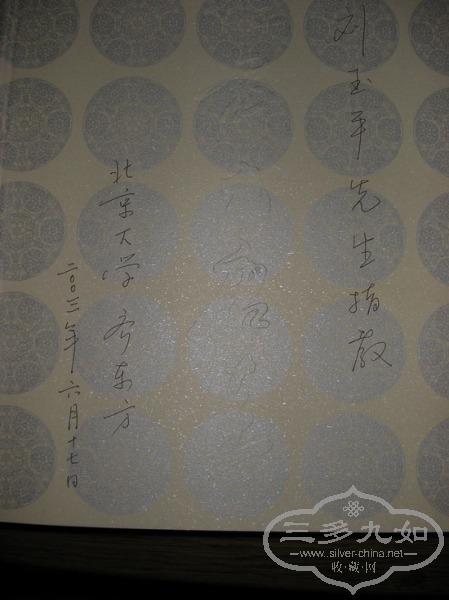 刘玉平先生指教
北京大学 齐东方
二〇〇三年六月十七日
三多九如
www.silver-china.net
收·藏·网